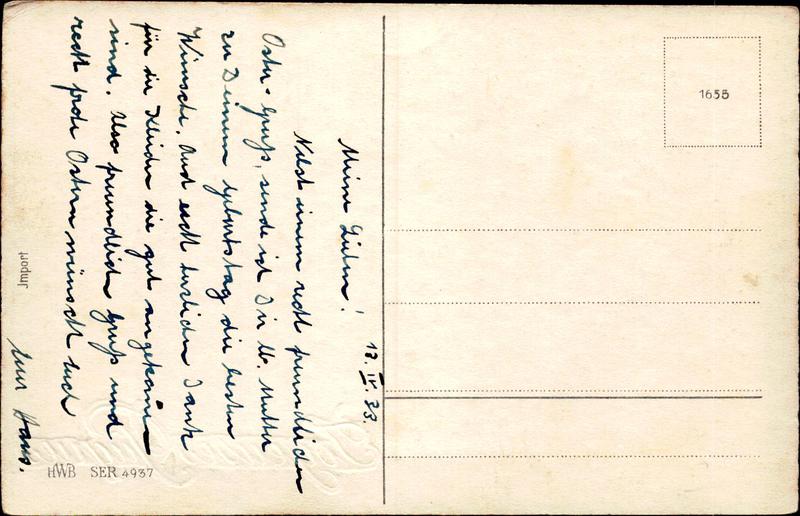 12. IV. 33.
Meine Lieben!
Nebst einem recht freundlichen
Oster-Gruß, sende ich Dir lb. Mutter
zu Deinem Geburtstag die besten
Wünsche. Auch recht herzlichen Dank
für die Kleider die gut angekommen
sind. Also freundlich Gruß und
recht frohe Ostern wünscht Euch
Euer Hans.
Import
HWB SER 4937
1655